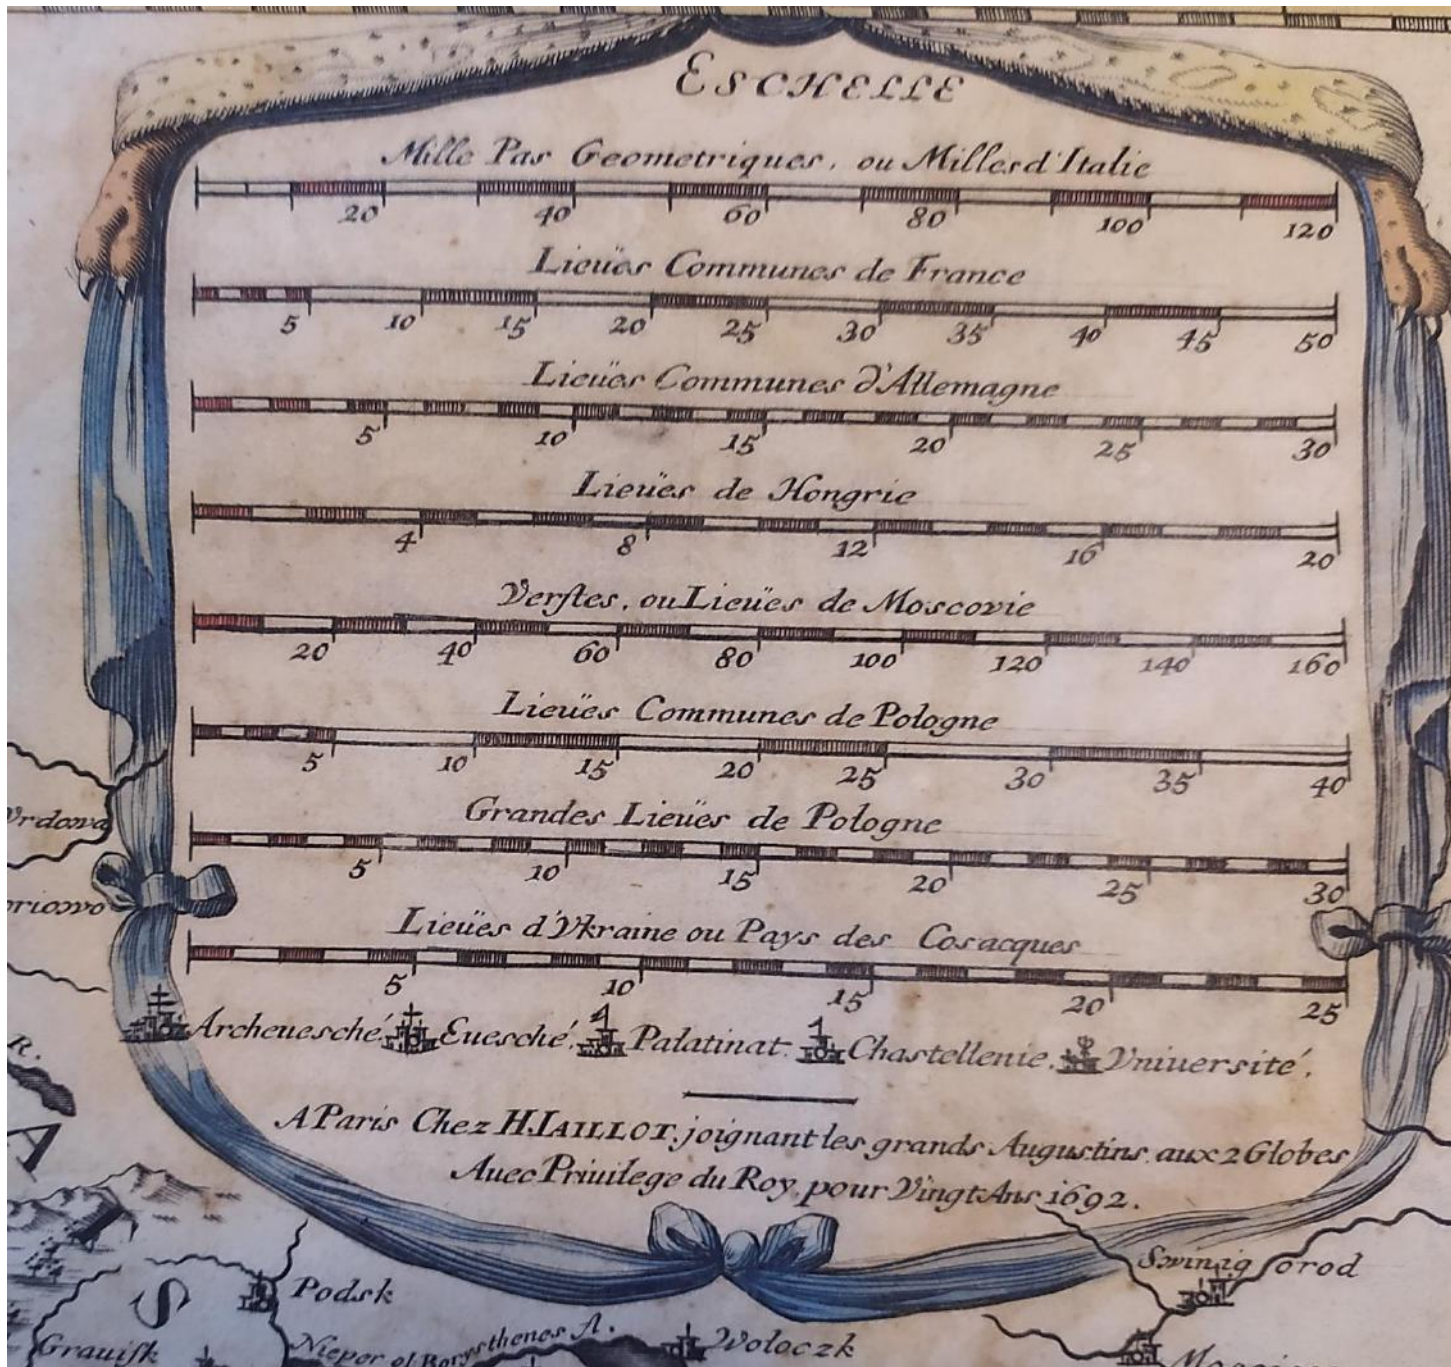 ESCHELLE
Mille Pas Geometriques, ou Milles d'Italie
20 40 60 80 100 120
Lieües Communes de France
5 10 15 20 25 30 35 40 45 50
Lieües Communes d'Allemagne
5 10 15 20 25 30
Lieües de Hongrie
4 8 12 16 20
Verstes, ou Lieües de Moscovie
20 40 60 80 100 120 140 160
Lieües Communes de Pologne
5 10 15 20 25 30 35 40
Grandes Lieües de Pologne
5 10 15 20 25 30
Vrdowa
Lieües d'Vkraine ou Pays des Cosacques
5 10 15 20 25
Archeuesché. Euesché. Palatinat. Chastellenie. Vniuersité.
R.
A
A Paris Chez H. IAILLOT, joignant les grands Augustins, aux 2 Globes
Auec Priuilege du Roy, pour Vingt Ans 1692.
Swinig orod
S
Podsk
Grauisk
Nieper ol Borysthenes R.
Woloczk